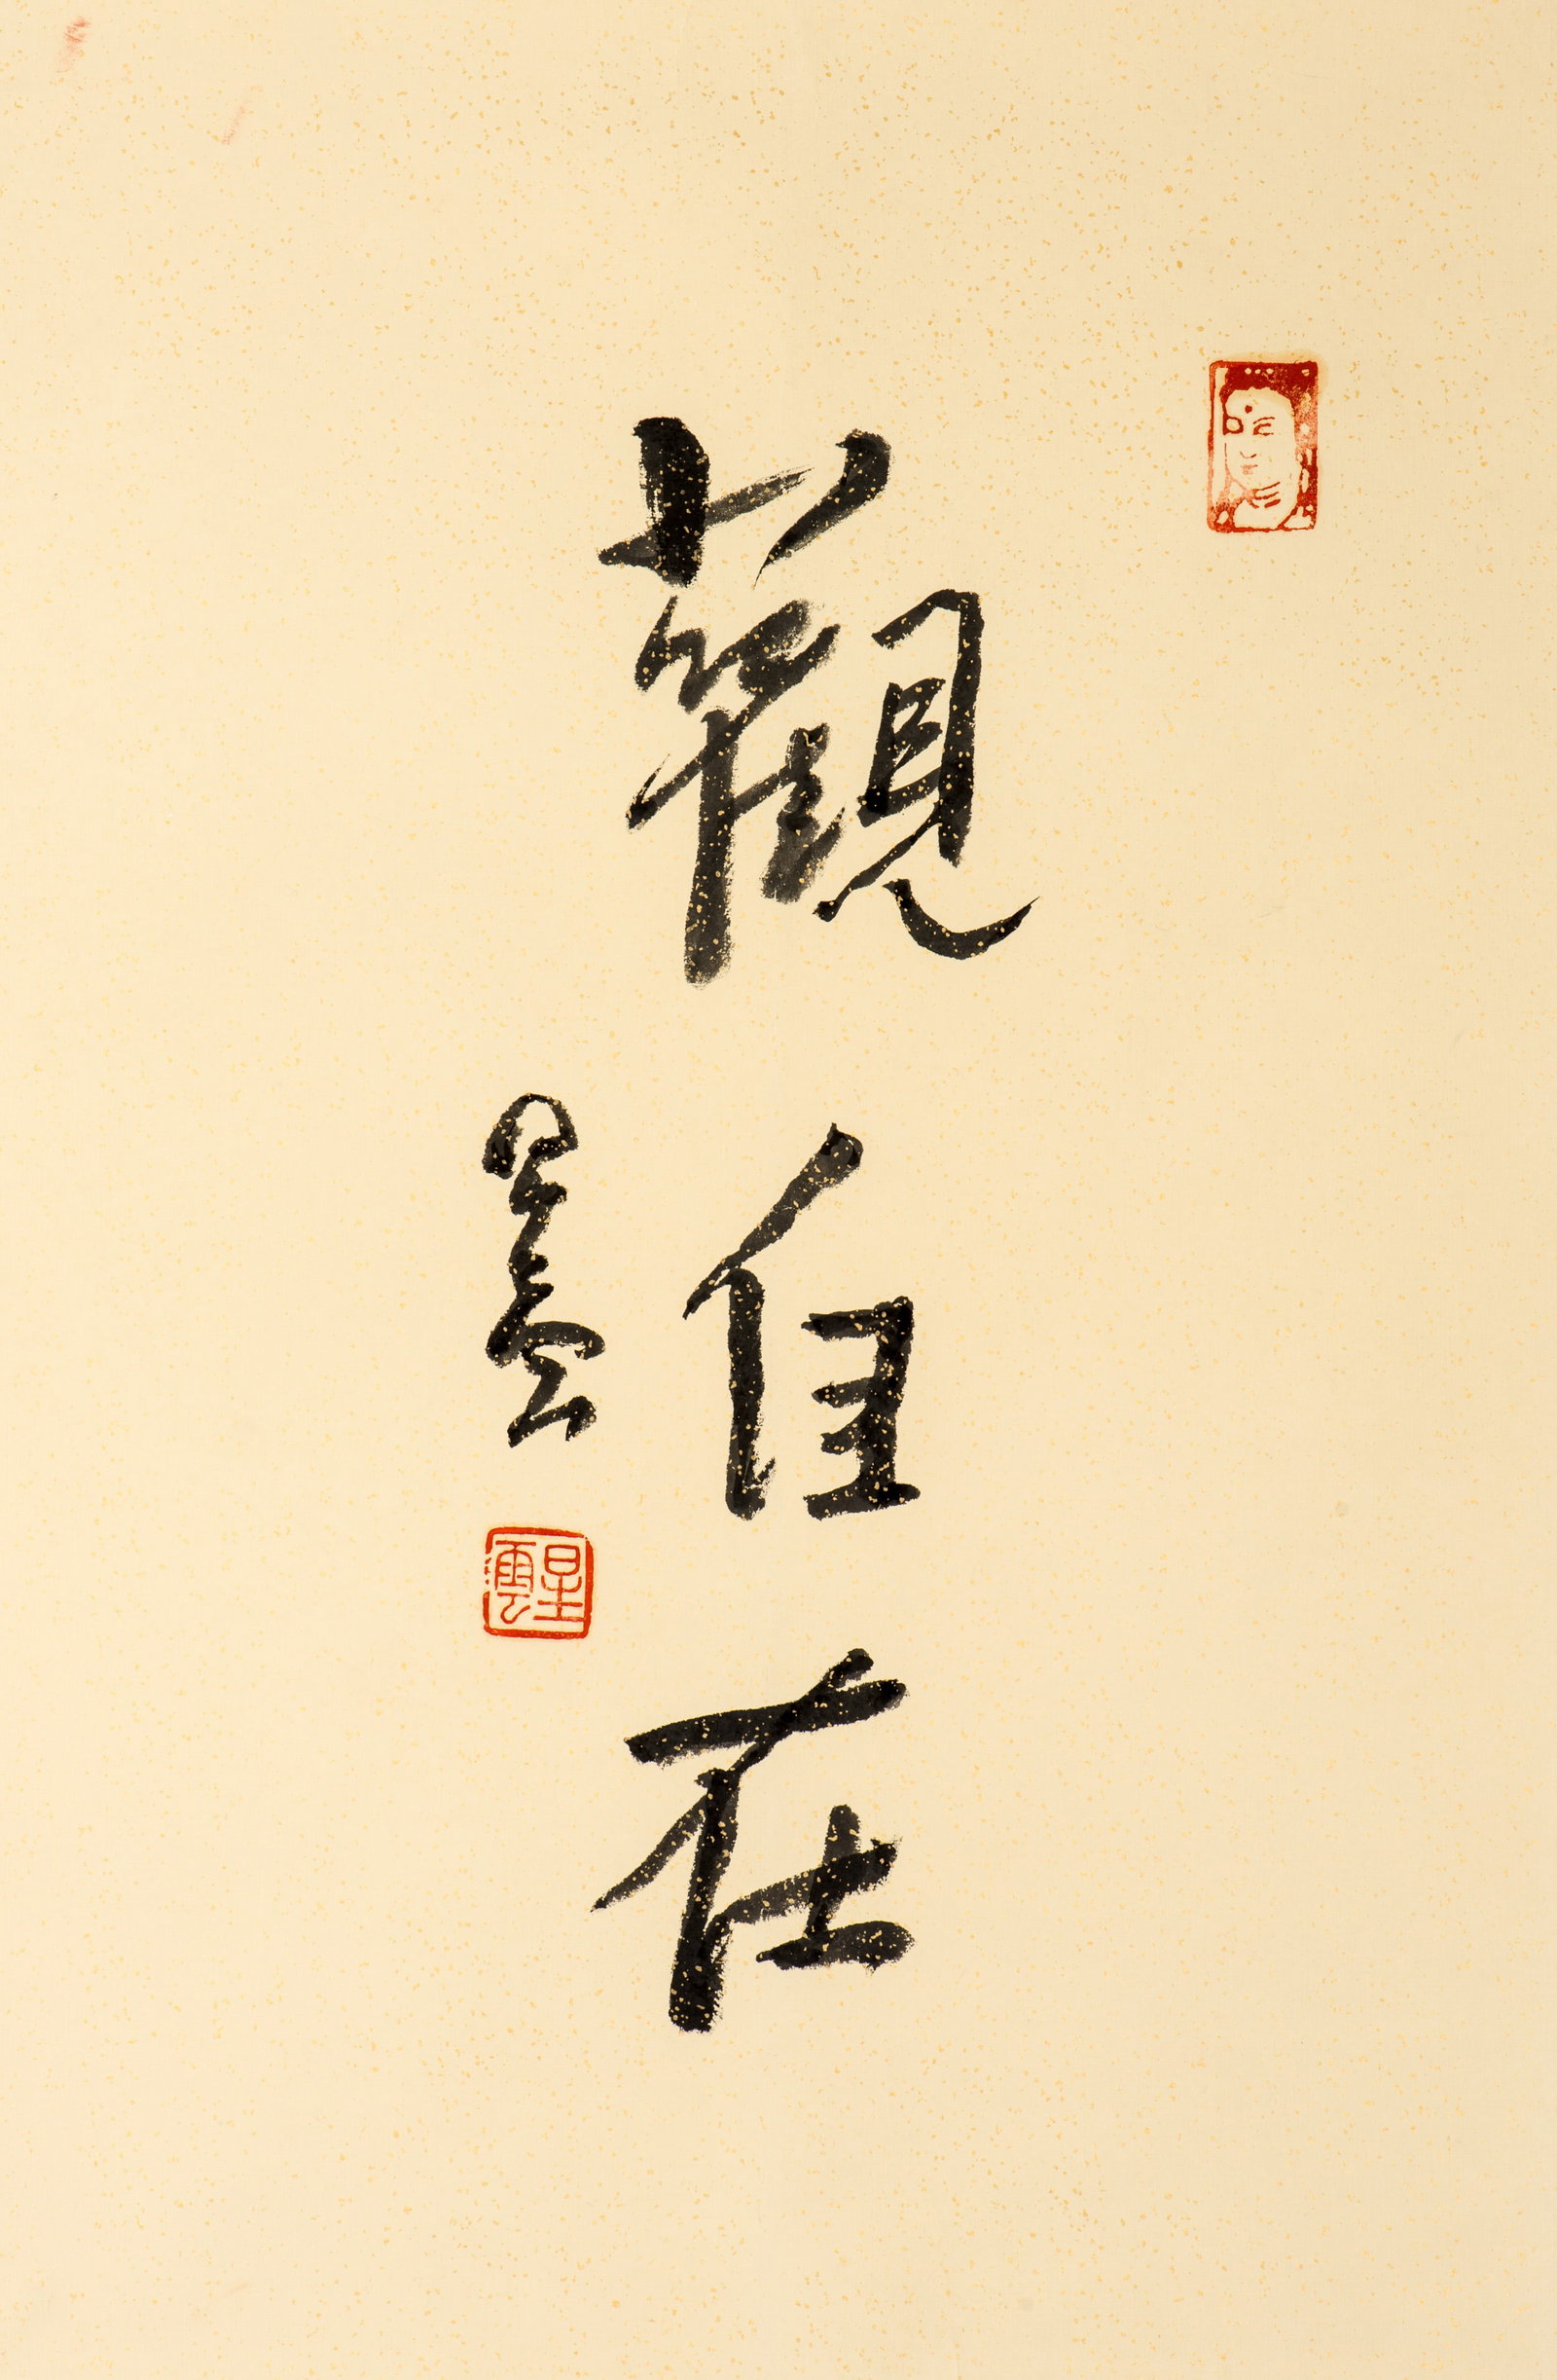 觀自在
星雲
星雲